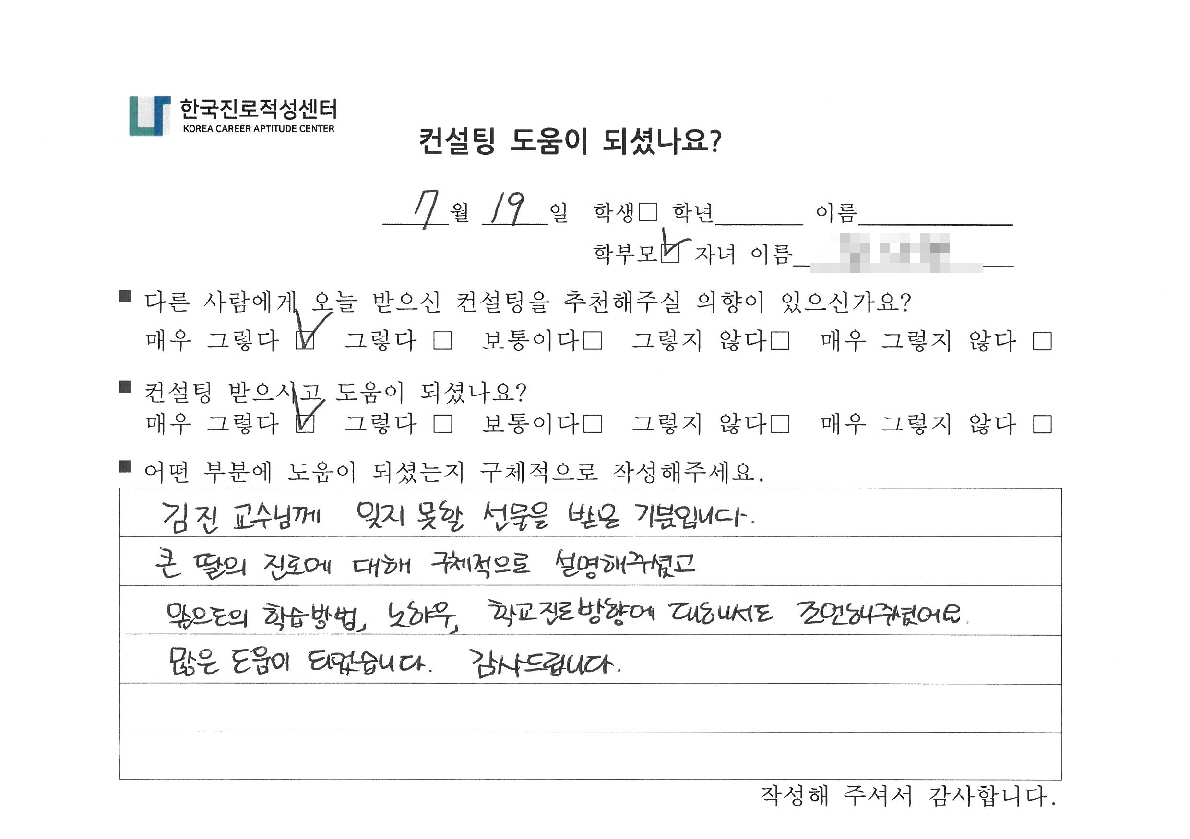 한국진로적성센터
KOREA CAREER APTITUDE CENTER
컨설팅 도움이 되셨나요?
7월 19일 학생□ 학년 이름
학부모☑ 자녀 이름
■ 다른 사람에게 오늘 받으신 컨설팅을 추천해주실 의향이 있으신가요?
매우 그렇다 ☑ 그렇다 □ 보통이다□ 그렇지 않다□ 매우 그렇지 않다 □
■ 컨설팅 받으시고 도움이 되셨나요?
매우 그렇다 ☑ 그렇다 □ 보통이다□ 그렇지 않다□ 매우 그렇지 않다 □
■ 어떤 부분에 도움이 되셨는지 구체적으로 작성해주세요.
김진 교수님께 잊지 못할 선물을 받은 기분입니다.
큰 딸의 진로에 대해 구체적으로 설명해주셨고
학습방법, 노하우, 학교진로방향에 대해서도 조언해주셨어요.
많은 도움이 되었습니다. 감사드립니다.
작성해 주셔서 감사합니다.